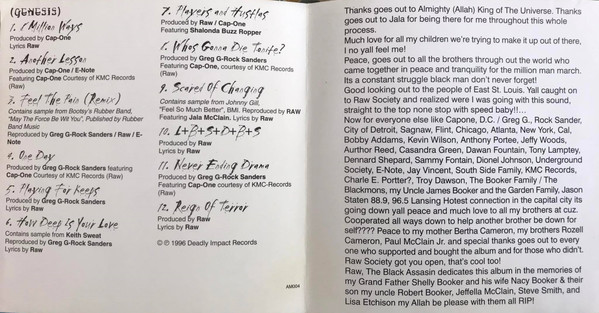 (GENESIS)
1. 1 Million Ways
Produced by Cap-One
Lyrics Raw
2. Another Lesson
Produced by Cap-One / E-Note
Featuring Cap-One Courtesy of KMC Records
(Raw)
3. Feel The Pain (Remix)
Contains sample from Bootsy's Rubber Band,
"May The Force Be Wit You", Published by Rubber
Band Music
Reproduced by Greg G-Rock Sanders / Raw / E-
Note
4. One Day
Produced by Greg G-Rock Sanders featuring
Cap-One Courtesy of KMC Records (Raw)
5. Playing For Keeps
Produced by Greg G-Rock Sanders
Lyrics by Raw
6. How Deep Is Your Love
Contains sample from Keith Sweat
Reproduced by Greg G-Rock Sanders
Lyrics by Raw
7. Players and Hustlas
Produced by Raw / Cap-One
Featuring Shalonda Buzz Ropper
8. Whos Gonna Die Tonite?
Produced by Greg G-Rock Sanders
Featuring Cap-One, courtesy of KMC Records
(Raw)
9. Scared Of Changing
Contains sample Johnny Gill,
"Feel So Much Better", BMI. Reproduced by RAW
Featuring Jala McClain. Lyrics by Raw
10. L+B+S+D+B+S
Produced by Raw
Lyrics by Raw
11. Never Ending Drama
Produced by Greg G-Rock Sanders
Featuring Cap-One courtesy of KMC-Records
(Raw)
12. Reign Of Terror
Produced by Raw
Lyrics by Raw
© ℗ 1996 Deadly Impact Records
AM004
Thanks goes out to Almighty (Allah) King of The Universe. Thanks
goes out to Jala for being there for me throughout this whole
process.
Much love for all my children we're trying to make it up out of there,
I no yall feel me!
Peace, goes out to all the brothers through out the world who
came together in peace and tranquility for the million man march.
Its a constant struggle black man don't never forget!
Good looking out to the people of East St. Louis. Yall caught on
to Raw Society and realized were I was going with this sound,
straight to the top none stop with speed baby!!...
Now for everyone else Capone, D.C. / Greg G., Rock Sander,
City of Detroit, Sagnaw, Flint, Chicago, Atlanta, New York, Cal,
Bobby Addams, Kevin Wilson, Anthony Portee, Jeffy Woods,
Aurthor Reed, Casandra Green, Dawan Fountain, Tony Lamptey,
Dennard Shepard, Sammy Fontain, Dionel Johnson, Underground
Society, E-Note, Jay Vincent, South Side Family, KMC Records,
Charle E. Portter?, Troy Dawson, The Booker Family / The
Blackmons, my Uncle James Booker and the Garden Family, Jason
Staten 88.9, 96.5 Lansing Hotest connection in the capital city its
going down yall peace and much love to all my brothers at cuz.
Cooperated all ways down to help another brother be down for
self???? Peace to my mother Bertha Cameron, my brothers Rozell
Cameron, Paul McClain Jr. and special thanks goes out to every
one who supported and bought the album and for those who didn't.
Raw Society got you open, that's cool too!
Raw, The Black Assasin dedicates this album in the memories of
my Grand Father Shelly Booker and his wife Nacy Booker & their
son my uncle Robert Booker, Jeffella McClain, Steve Smith, and
Lisa Etchison my Allah be please with them all RIP!